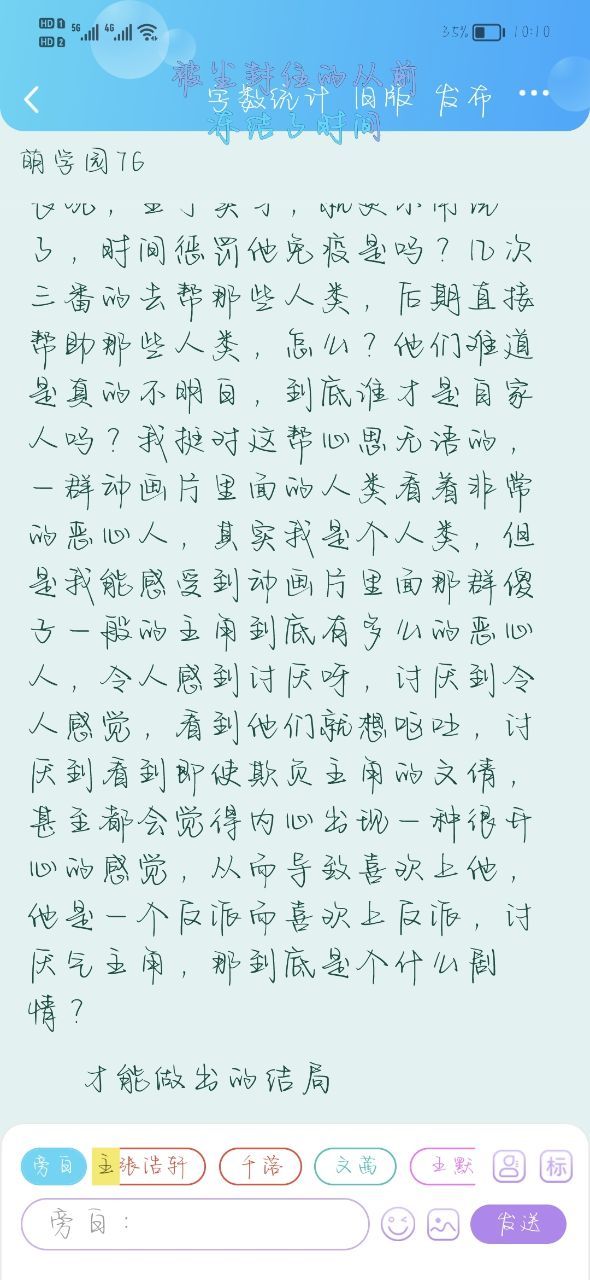 HD 1 5G 4G
HD 2
35% 10:10
被尘封住的从前
字数统计 旧版 发布 ...
冻结了时间
萌学园76
了,时间惩罚他免疫是吗?几次
三番的去帮那些人类,后期直接
帮助那些人类,怎么?他们难道
是真的不明白,到底谁才是自家
人吗?我挺对这帮心思无语的,
一群动画片里面的人类看着非常
的恶心人,其实我是个人类,但
是我能感受到动画片里面那群傻
子一般的主角到底有多么的恶心
人,令人感到讨厌呀,讨厌到令
人感觉,看到他们就想呕吐,讨
厌到看到即使欺负主角的文倩,
甚至都会觉得内心出现一种很开
心的感觉,从而导致喜欢上他,
他是一个反派而喜欢上反派,讨
厌气主角,那到底是个什么剧
情?
才能做出的结局
旁白 主 张浩轩 千落 文茜 王默 标
旁白: 发送